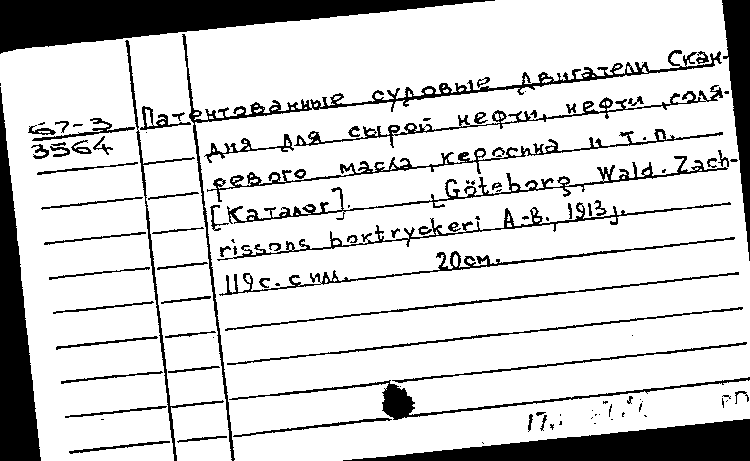 67-3
3564
Патентованные судовые двигатели Скан-
дия для сырой нефти, нефти, соля-
ревого масла, керосина и т.п.
[Каталог]. [Göteborg, Wald. Zach-
rissons boktryckeri A.-B., 1913].
119 с. с илл. 20 см.